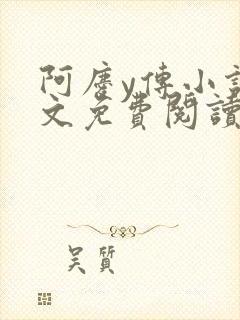 阿麐y傳小說
文免費閱讀
吴質